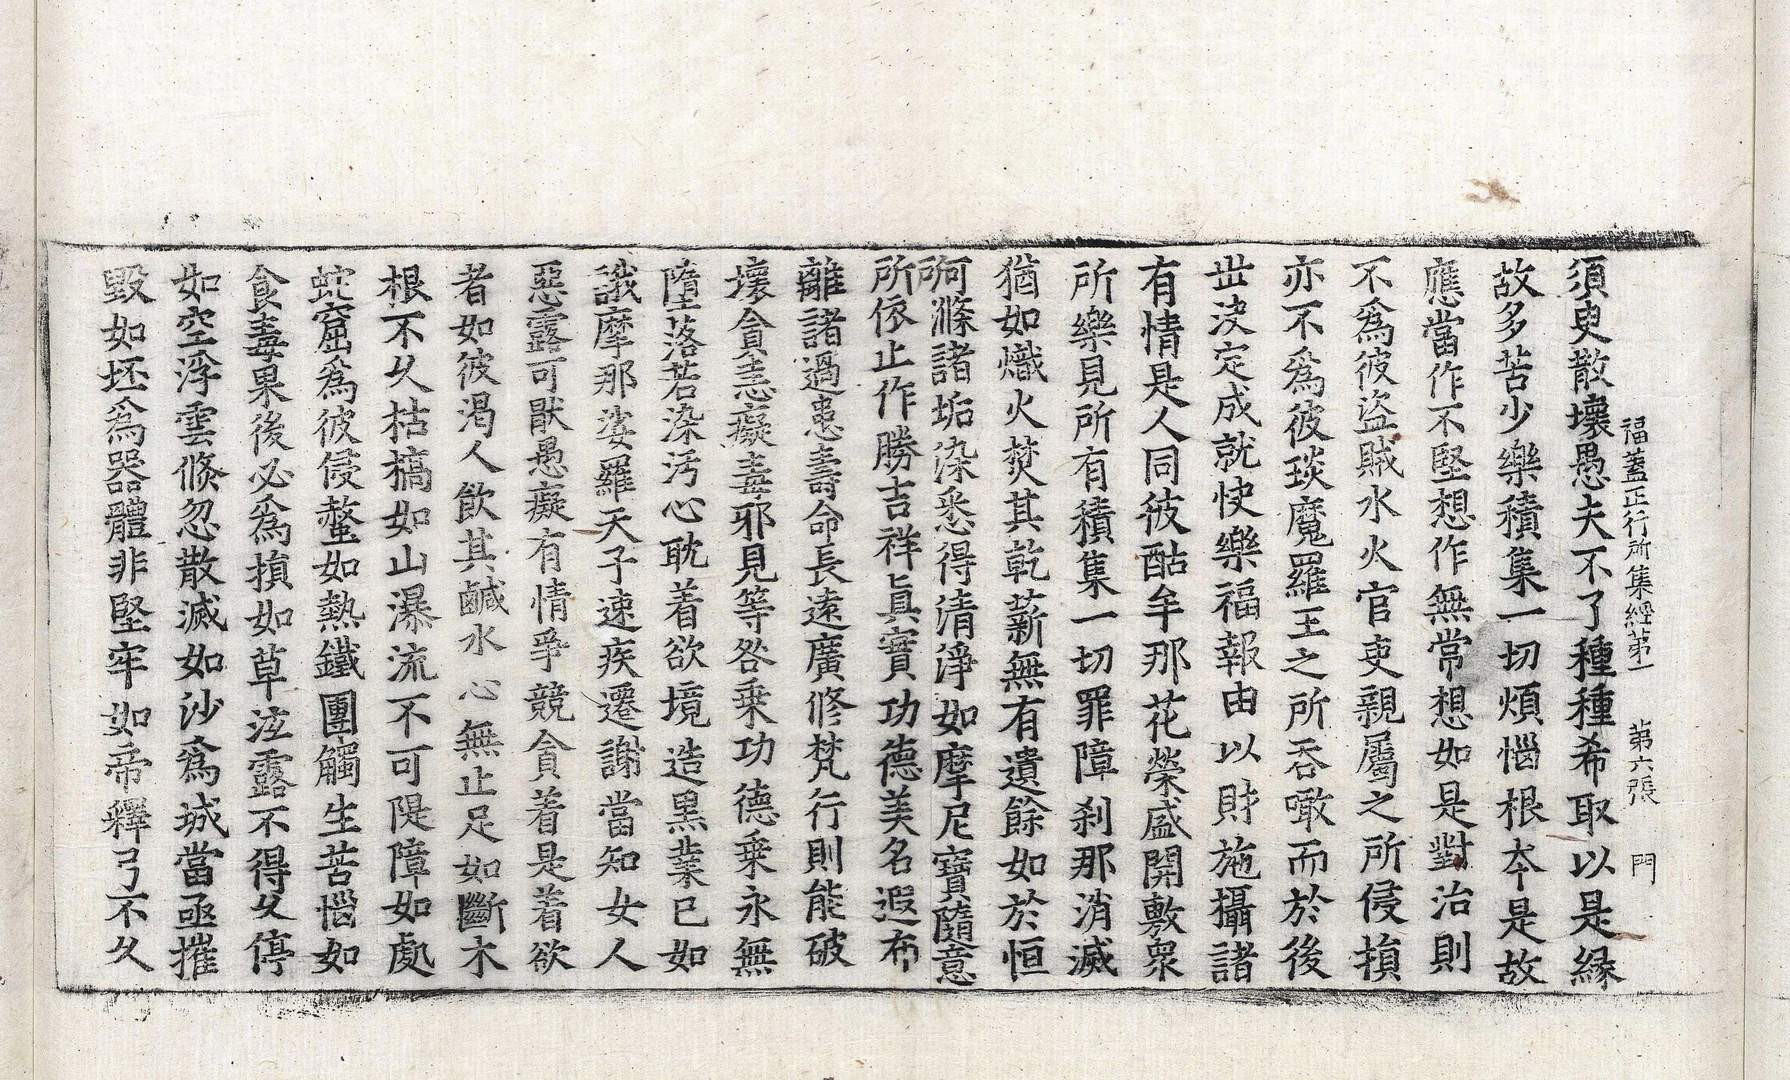 福蓋正行所集經第一　第六張　門
須臾散壞愚夫不了種種希取以是縁
故多苦少樂積集一切煩惱根本是故
應當作不堅想作無常想如是對治則
不為彼盜賊水火官吏親屬之所侵損
亦不為彼琰魔羅王之所吞噉而於後
世決定成就快樂福報由以財施攝諸
有情是人同彼酤牟那花榮盛開敷衆
所樂見所有積集一切罪障剎那消滅
猶如熾火焚其乾薪無有遺餘如於恒
河滌諸垢染悉得清淨如摩尼寶隨意
所依止作勝吉祥真實功德美名遐布
離諸過患壽命長遠廣修梵行則能破
壞貪恚癡毒邪見等咎乘功德乘永無
墮落若染污心耽着欲境造黒業已如
誐摩那娑羅天子速疾遷謝當知女人
惡露可猒愚癡有情爭競貪着是着欲
者如彼渴人飲其鹹水心無止足如斷木
根不久枯槁如山瀑流不可隄障如處
蛇窟為彼侵螫如熱鐵團觸生苦惱如
食毒果後必為損如草泫露不得久停
如空浮雲倏忽散滅如沙為城當亟摧
毀如坯為器體非堅牢如帝釋弓不久